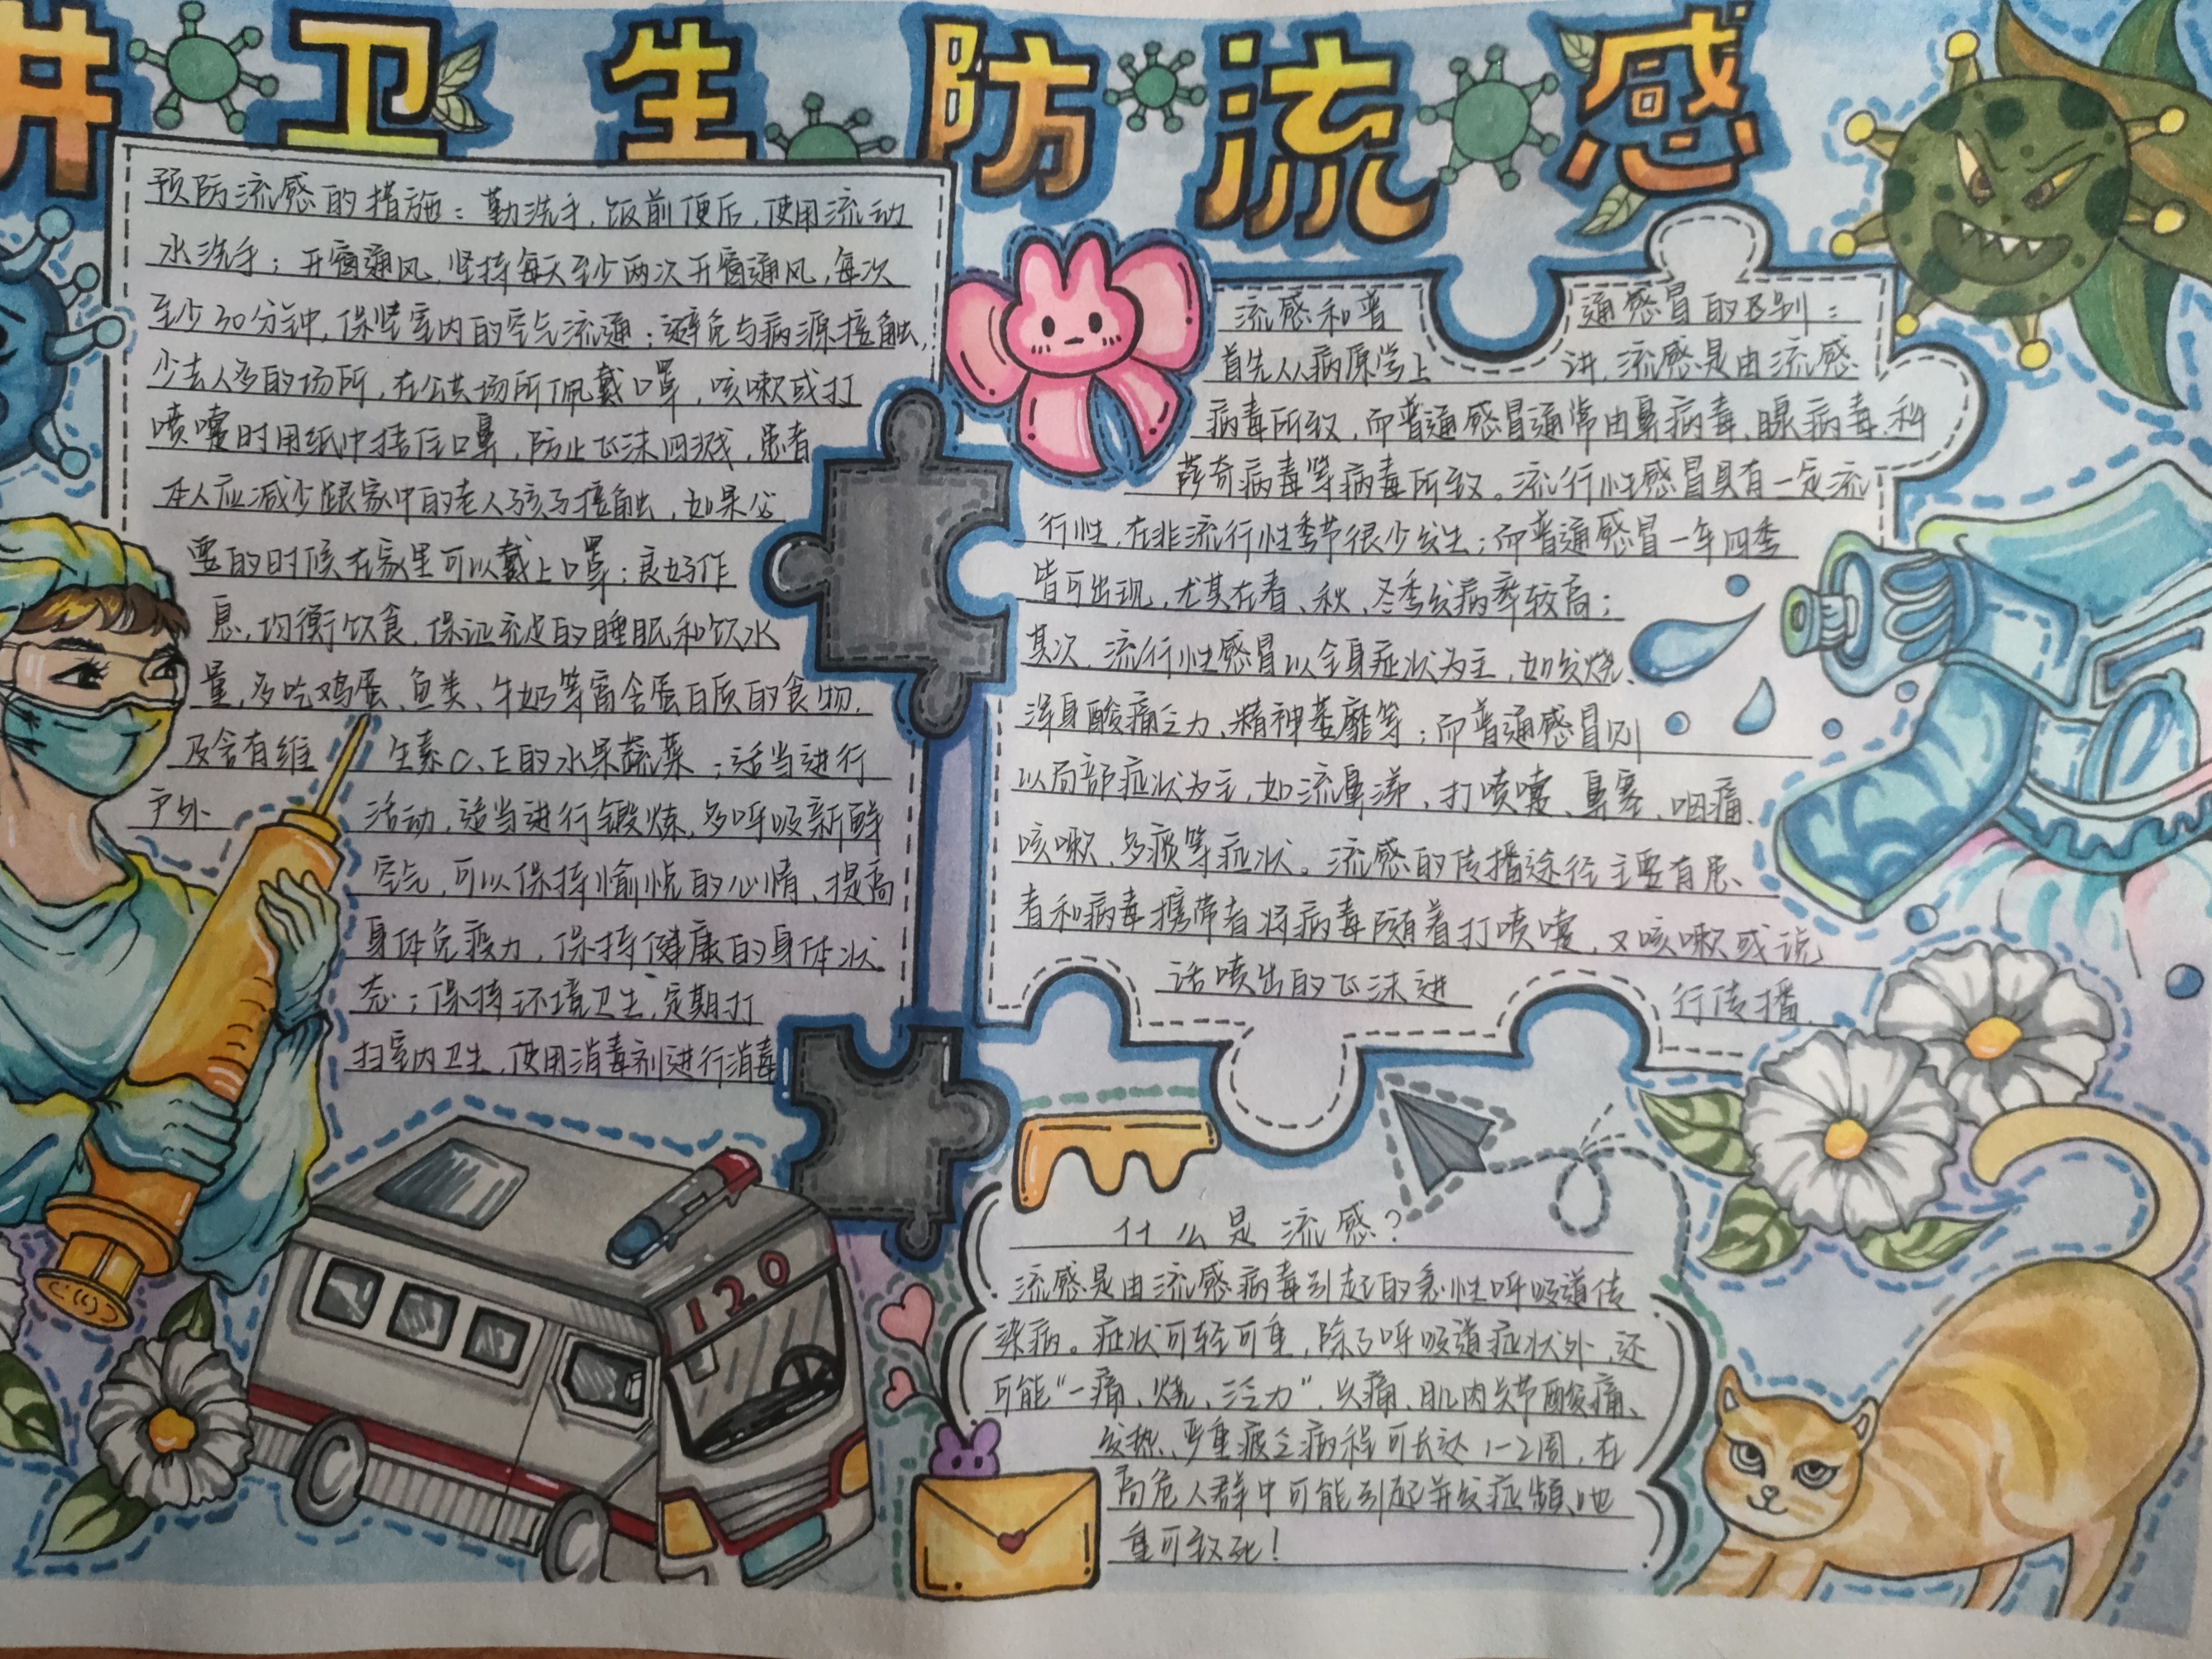 讲卫生防流感
预防流感的措施：勤洗手，饭前便后，使用流动
水洗手；开窗通风，坚持每天至少两次开窗通风，每次
至少30分钟，保证室内的空气流通；避免与病源接触，
少去人多的场所，在公共场所佩戴口罩，咳嗽或打
喷嚏时用纸巾捂住口鼻，防止飞沫四溅，患者
本人应减少跟家中的老人孩子接触，如果必
要的时候在家里可以戴上口罩；良好作
息，均衡饮食，保证充足的睡眠和饮水
量，多吃鸡蛋、鱼类、牛奶等富含蛋白质的食物，
及含有维生素C、E的水果蔬菜；适当进行
户外活动，适当进行锻炼，多呼吸新鲜
空气，可以保持愉悦的心情、提高
身体免疫力，保持健康的身体状
态；保持环境卫生，定期打
扫室内卫生，使用消毒剂进行消毒
流感和普通感冒的区别：
首先从病原学上讲，流感是由流感
病毒所致，而普通感冒通常由鼻病毒、腺病毒、科
萨奇病毒等病毒所致。流行性感冒具有一定流
行性，在非流行性季节很少发生；而普通感冒一年四季
皆可出现，尤其在春、秋、冬季发病率较高；
其次，流行性感冒以全身症状为主，如发烧、
浑身酸痛乏力、精神萎靡等；而普通感冒则
以局部症状为主，如流鼻涕、打喷嚏、鼻塞、咽痛、
咳嗽、多痰等症状。流感的传播途径主要有患、
者和病毒携带者将病毒随着打喷嚏，又咳嗽或说
话喷出的飞沫进行传播。
什么是流感？
流感是由流感病毒引起的急性呼吸道传
染病。症状可轻可重，除了呼吸道症状外，还
可能“一痛、烧、三乏力”，头痛、肌肉关节酸痛、
发热、严重疲乏病程可长达1-2周，在
高危人群中可能引起并发症频、
重可致死！
120